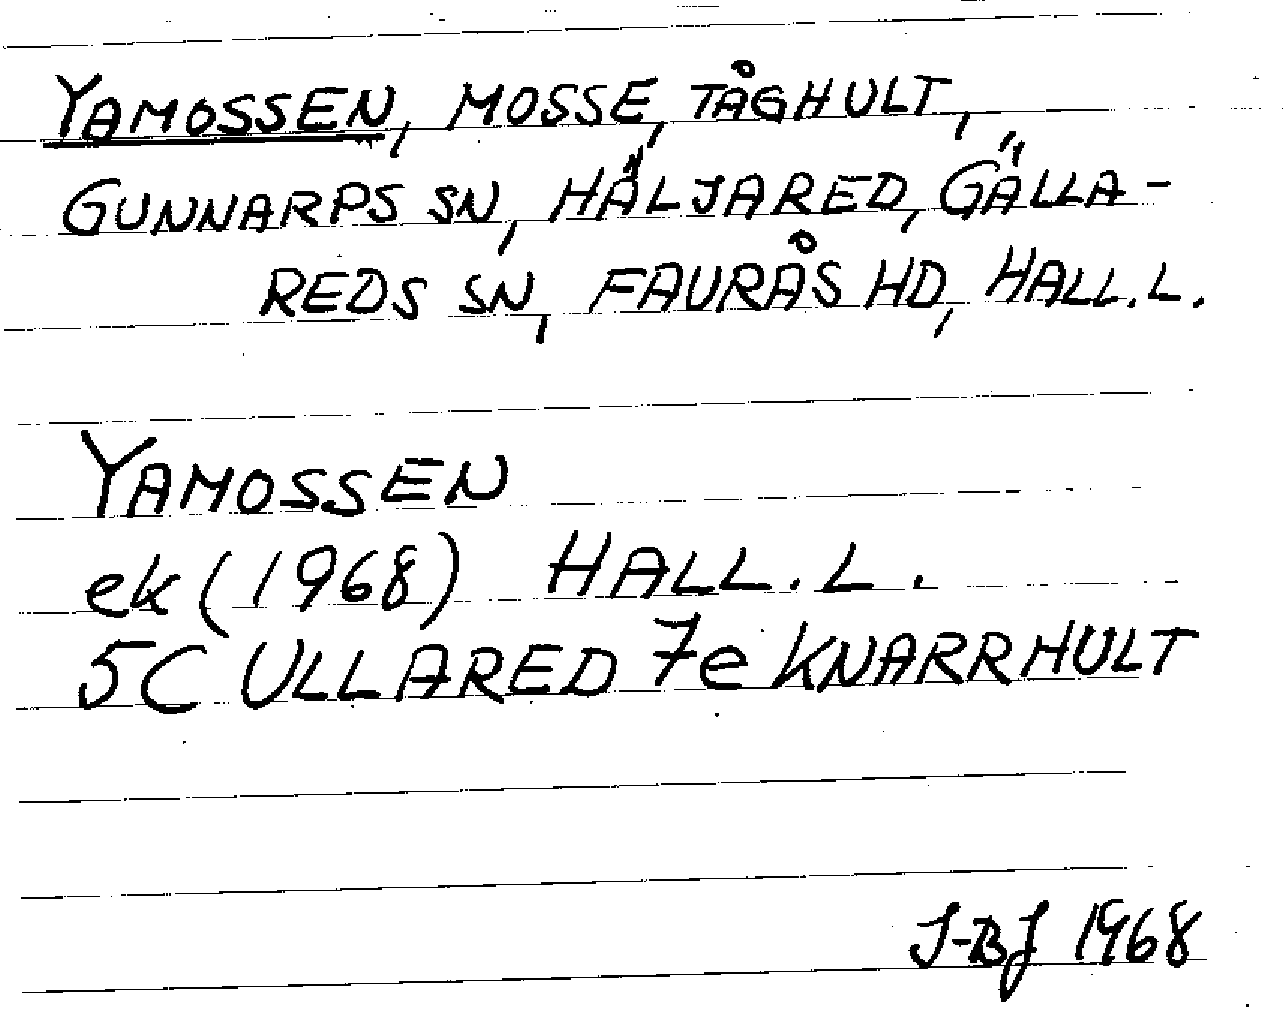 YAMOSSEN, MOSSE, TÅGHULT,
GUNNARPS SN, HÄLJARED, GÄLLA-
REDS SN, FAURÅS HD, HALL.L.
YAMOSSEN
ek (1968) HALL.L.
5C ULLARED 7e KNARRHULT
J-BJ 1968